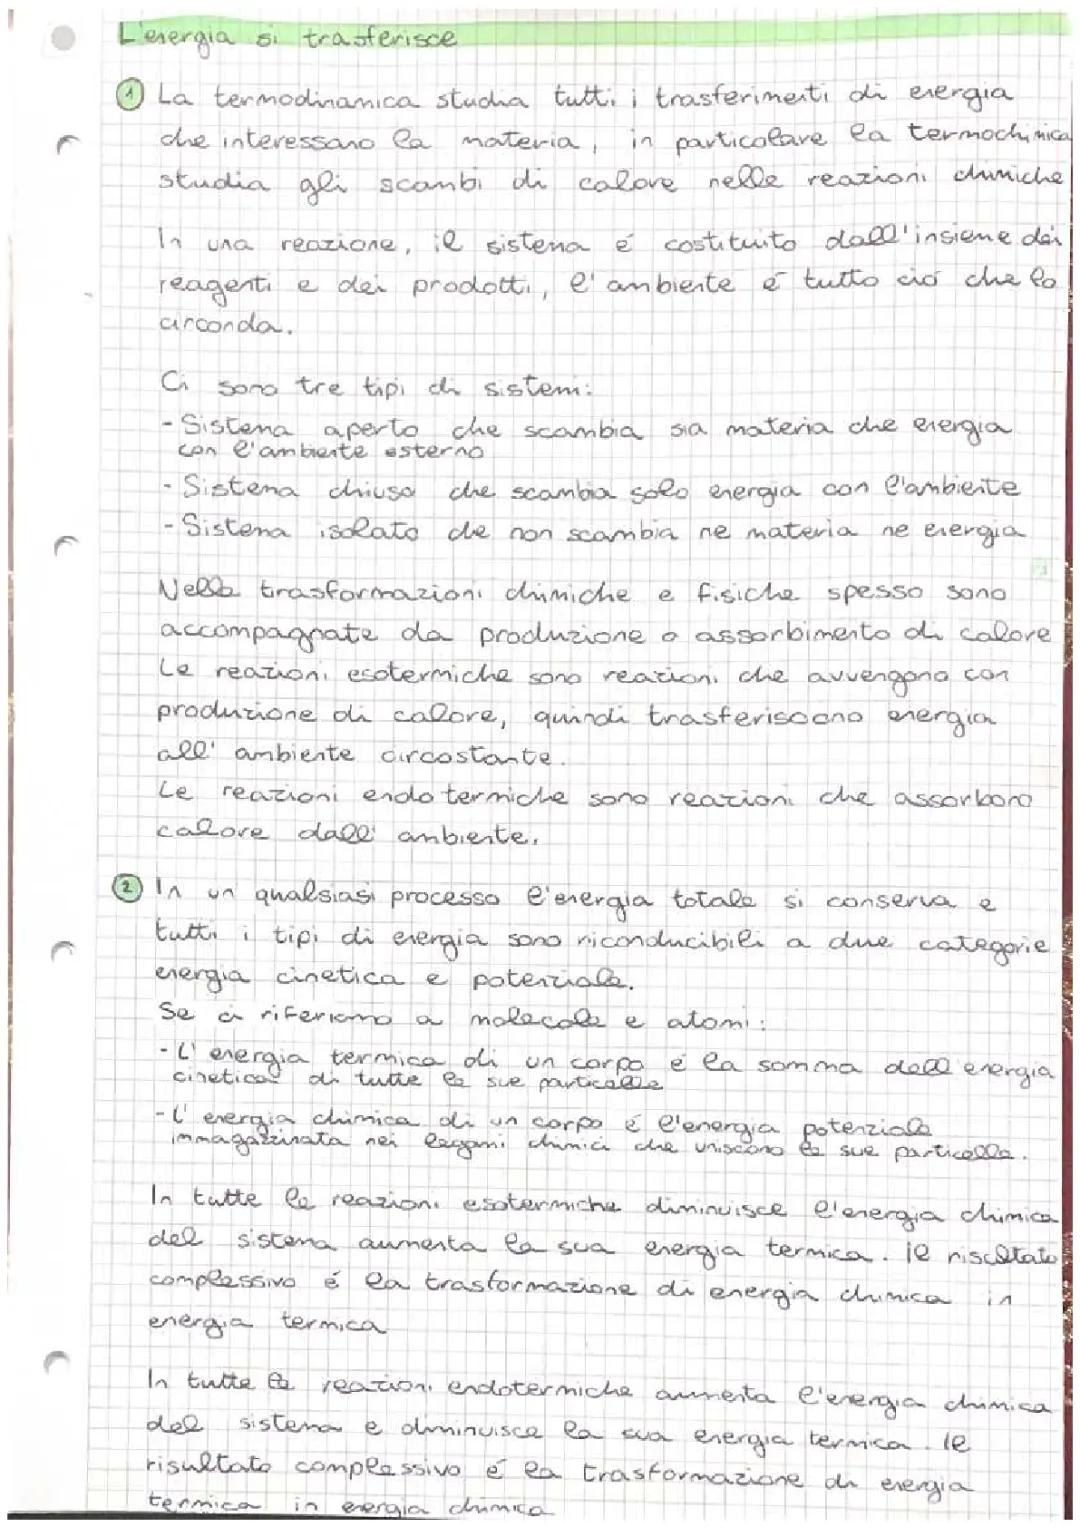 L'energia si trasferisce
1 La termodinamica studia tutti i trasferimenti di energia
che interessano la materia, in particolare la termochimica
studia gli scambi di calore nelle reazioni chimiche
In una reazione, il sistema é costituito dall'insieme dei
reagenti e dei prodotti, l'ambiente é tutto ció che lo
circonda.
Ci sono tre tipi di sistemi:
- Sistema aperto che scambia sia materia che energia
con l'ambiente esterno
- Sistema chiuso che scambia solo energia con l'ambiente
- Sistema isolato che non scambia ne materia ne energia
Nelle trasformazioni chimiche e fisiche spesso sono
accompagnate da produzione o assorbimento di calore
Le reazioni esotermiche sono reazioni che avvengono con
produzione di calore, quindi trasferiscono energia
all'ambiente circostante.
Le reazioni endotermiche sono reazioni che assorbono
calore dall'ambiente.
2 In un qualsiasi processo l'energia totale si conserva e
tutti i tipi di energia sono riconducibili a due categorie
energia cinetica e potenziale.
Se ci riferiamo a molecole e atomi:
- L'energia termica di un corpo é la somma dell'energia
cinetica di tutte le sue particelle
- L'energia chimica di un corpo é l'energia potenziale
immagazzinata nei legami chimici che uniscono le sue particelle.
In tutte le reazioni esotermiche diminuisce l'energia chimica
del sistema aumenta la sua energia termica. Il riscltato
complessivo é la trasformazione di energia chimica in
energia termica
In tutte le reazioni endotermiche aumenta l'energia chimica
del sistema e diminuisce la sua energia termica. Il
risultato complessivo é la trasformazione di energia
termica in energia chimica